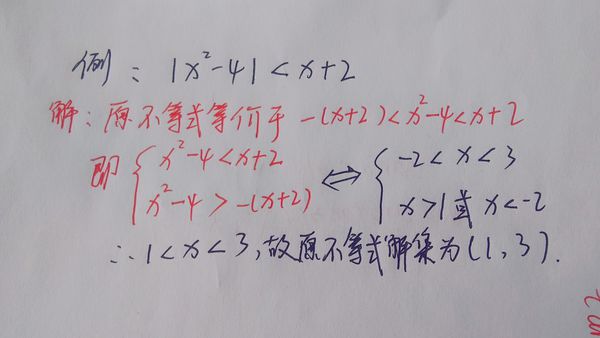 例：|x²-4|<x+2
解：原不等式等价于 -(x+2)<x²-4<x+2
即 { x²-4<x+2 ⇔ { -2<x<3
x²-4>-(x+2) x>1或x<-2
∴1<x<3，故原不等式解集为(1,3).